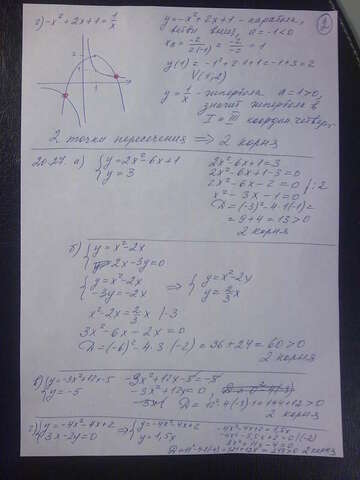 г) -x²+2x+1=1/x
y=-x²+2x+1 - парабола,
ветви вниз, a=-1<0
x₀ = -2/2(-1) = -2/-2 = 1
y(1)=-1²+2·1+1=-1+3=2
V(1;2)
y=1/x - гипербола a=1>0,
значит гипербола в
I и III координ. четверт.
2 точки пересечения ⟹ 2 корня
2
20.27. а) {y=2x²-6x+1
{y=3
2x²-6x+1=3
2x²-6x+1-3=0
2x²-6x-2=0 /:2
x²-3x-1=0
D=(-3)²-4·1(-1)=
=9+4=13>0
2 корня
б) {y=x²-2x
2x-3y=0
{y=x²-2x
{-3y=-2x
⟹ {y=x²-2x
{y=2/3x
x²-2x=2/3x |·3
3x²-6x-2x=0
D=(-6)²-4·3·(-2)=36+24=60>0
2 корня
в) {y=-3x²+12x-5
{y=-5
-3x²+12x-5=-5
-3x²+12x=0
2 корня
г) {y=-4x²-4x+2
{3x-2y=0
⟹ {y=-4x²-4x+2
{y=1,5x
-4x²-4x+2=1,5x
2 корня